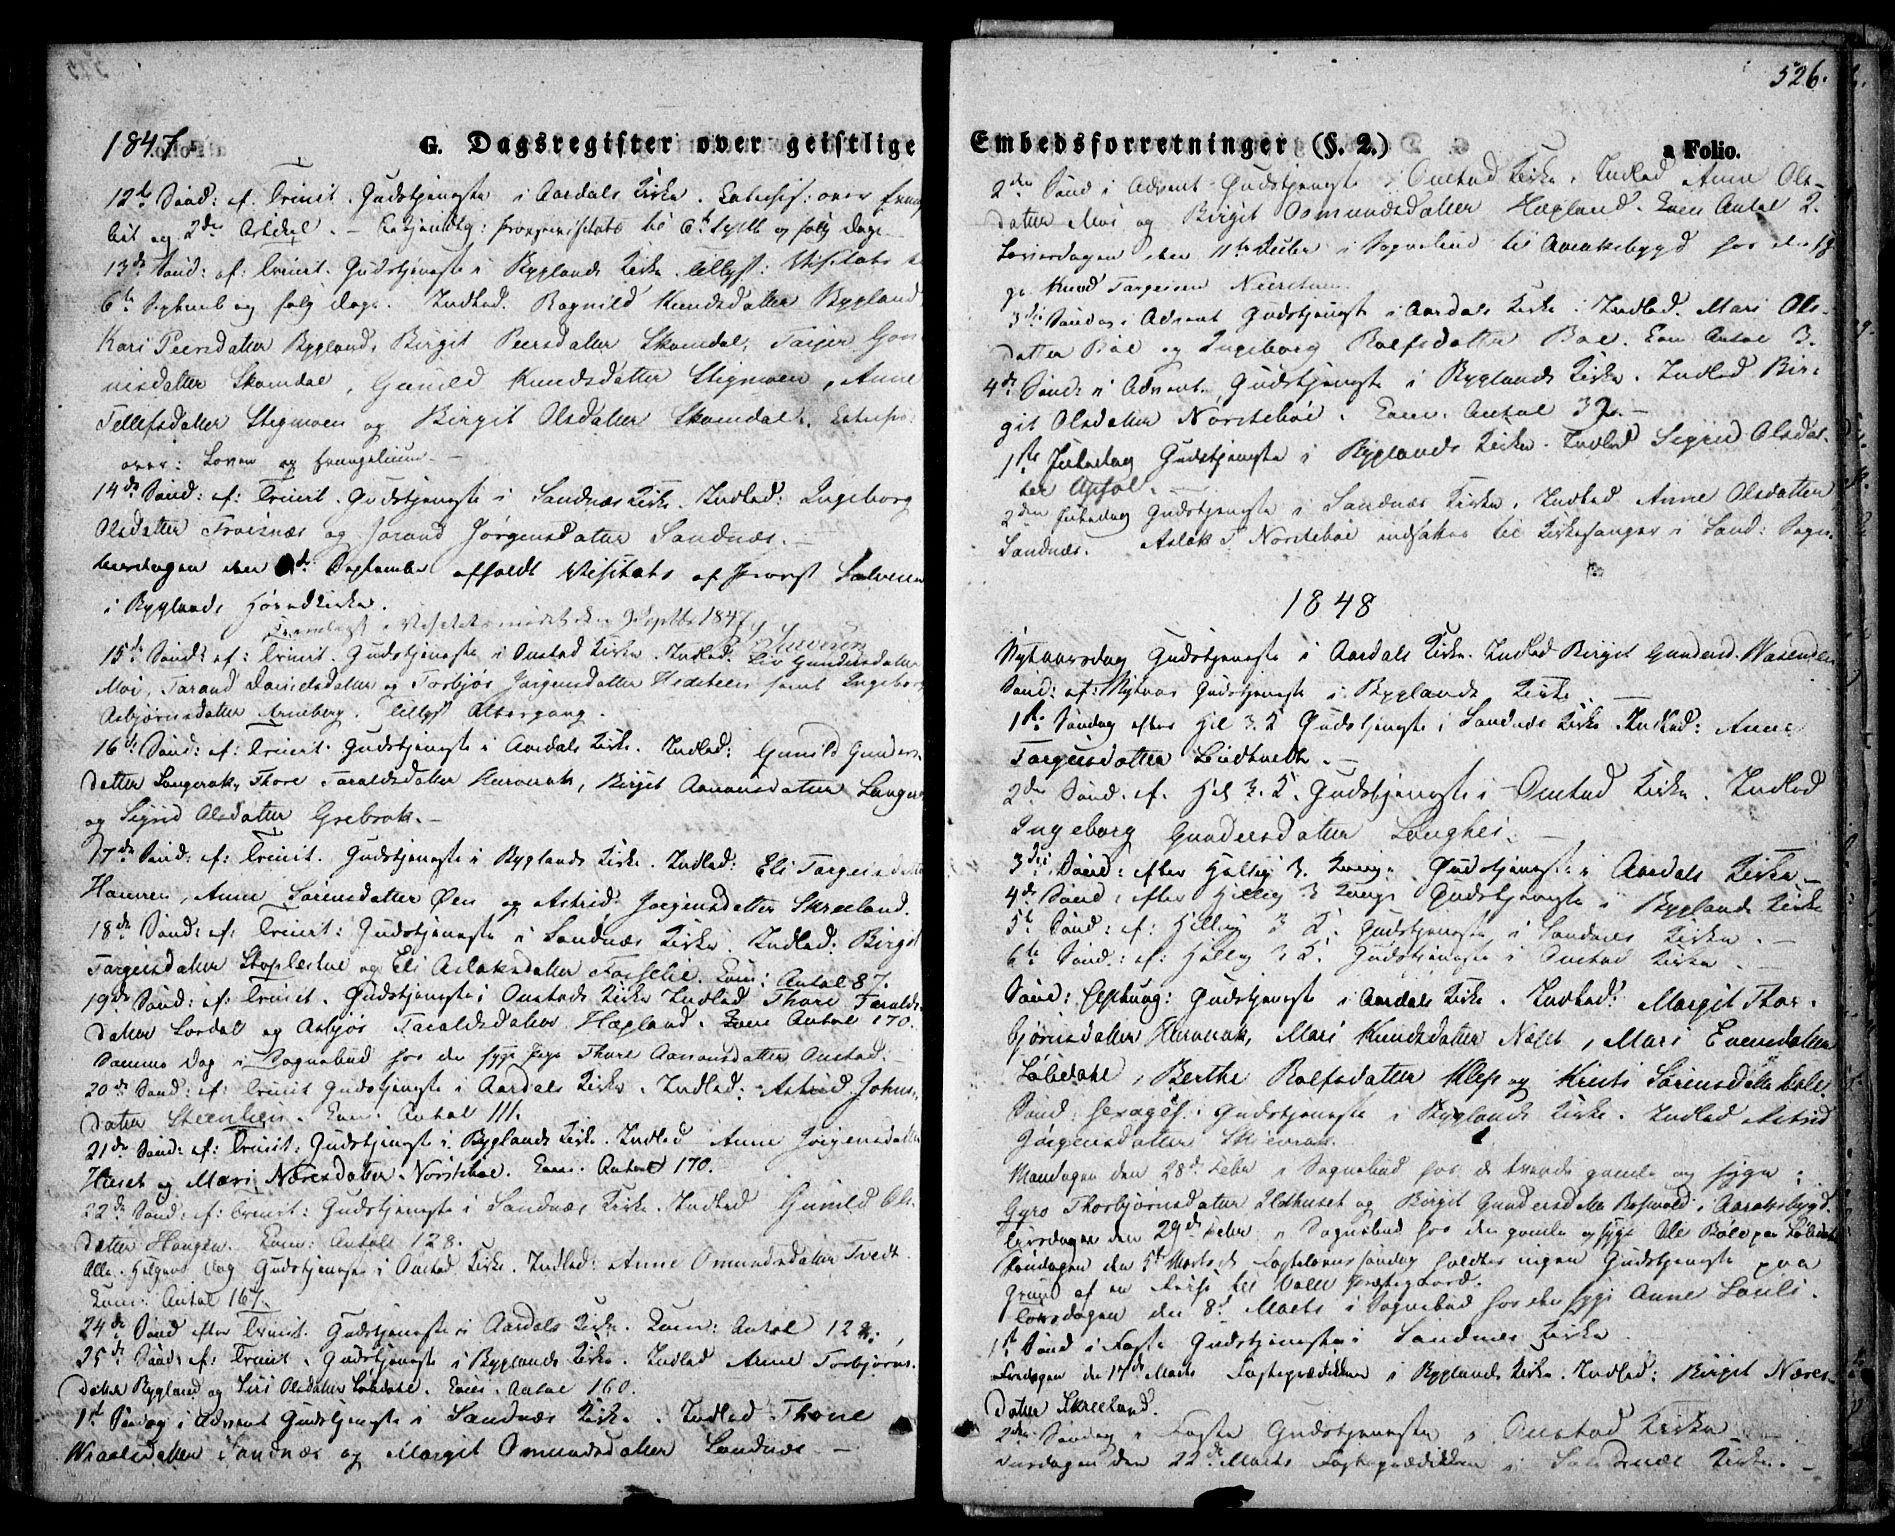 1847.
G. Dagsregister over geistlige
12te Sønd: ef: Trinit. Gudstjeneste i Aardals Kirke. Catechis: over
og 2den Artikel. - 6te Septb og følg Dage
13de Sønd: ef: Trinit. Gudstjeneste i Byglands Kirke. tillyst: Visitats
6te Septemb og følg Dage. Indled. Ragnild Knudsdatter Bygland
Kari Peersdatter Bygland, Birgit Peersdatter Skomdal, Taijer Gon
nisdatter Skomdal, Gunild Knudsdatter Stegmoen, Anne
Tellefsdatter Stegmoen og Birgit Olsdatter Skomdal.
over: Loven og Evangelium. -
14de Sønd: ef: Trinit. Gudstjeneste i Sandnæs Kirke. Indled: Ingeborg
Olsdatter Frøisnæs og Jorand Jørgensdatter Sandnæs. -
den September afholdt Visitats af Provst
i Byglands Hovedkirke.
Fremlagt i Visitatsmødet den 9 Septbr 1847
15de Sønd: ef: Trinit. Gudstjeneste i Austad Kirke. Indled: Liv Gundersdatter
Moi, Tarand Danielsdatter og Torbjør Jørgensdatter samt Ingeborg
Asbjørnsdatter Arneberg. tillyst Altergang.
16de Sønd: ef: Trinit. Gudstjeneste i Aardals Kirke. Indled: Gunild Gunders-
datter Langerak, Thore Taraldsdatter Hurverak, Birgit Aanonsdatter Langer
og Sigrid Olsdatter Grebrok. -
17de Sønd: ef: Trinit. Gudstjeneste i Byglands Kirke. Indled: Eli Targeisdatter
Hamren, Anne Sørensdatter Øen og Astrid Jørgensdatter Skreeland.
18de Sønd: ef: Trinit: Gudstjeneste i Sandnæs Kirke. Indled: Birgit
Targeisdatter og Eli Aslaksdatter. Com: Antal 87.
19de Sønd: ef: Trinit. Gudstjeneste i Austads Kirke Indled Thore Taralds-
datter Lordal og Asbjør Taraldsdatter Hægland. Com Antal 170.
Samme Dag i Sognebud hos den syge Pige Thore Aanonsdatter Austad. -
20de Sønd: ef: Trinit Gudstjeneste i Aardals Kirke. Indled: Astrid Johns-
datter. Com: Antal 111.
21de Sønd: ef: Trinit: Gudstjeneste i Byglands Kirke. Indled Anne Jørgensdatter
Huset og Mari Næresdatter Norstebøe. Com: Antal 170.
22de Sønd: ef: Trinit: Gudstjeneste i Sandnæs Kirke. Indled Gunild Ols-
datter Haugen. Com: Antal 128.
Alle Helgens Dag Gudstjeneste i Austad Kirke. Indled: Anne Omundsdatter Tvedt
Com: Antal 167.
24de Sønd efter Trinit. Gudstjeneste i Aardals Kirke. Com: Antal
25de Sønd: ef: Trinit. Gudstjeneste i Byglands Kirke. Indled Anne Torbjørns-
datter Bygland og Siri Olsdatter Løbdahl. Com: Antal 160.
1ste Søndag i Advent Gudstjeneste i Sandnæs Kirke. Indled Thone
Wraalsdatter Sandnæs og Margit Omundsdatter Sandnæs -
526.
Embedsforretninger (§. 2.)
a Folio.
2den Sønd i Advent Gudstjeneste i Austad Kirke. Indled Anne Ols-
datter Moi og Birgit Osmundsdatter Hægland. Com Antal 2.
Løverdagen den 11te i Sognebud til Araksbygd hos den sy
ge Knud Targeisen
3die Søndag i Advent Gudstjeneste i Aardals Kirke. Indled. Mari Ols-
datter Bøe og Ingeborg Rolfsdatter Boe. Com Antal 3.
4de Sønd: i Advent Gudstjeneste i Byglands Kirke. Indled Bir-
git Olsdatter Norstebøe. Com: Antal 32. -
1ste Juledag Gudstjeneste i Byglands Kirke. Indled Sigrid Olsdat-
ter Apfol. -
2den Juledag Gudstjeneste i Sandnæs Kirke. Indled Anne Olsdatter
Sandnæs. Aslak T Norstebøe indsættes til Kirkesanger i Sand: Sogn
1848
Nytaarsdag Gudstjeneste i Aardals Kirke. Indled Birgit Gundersd. Wasenden
Sønd: ef: Nytaar Gudstjeneste i Byglands Kirke. -
1ste Søndag efter Hel 3. K Gudstjeneste i Sandnæs Kirke Indled: Anne
Targeisdatter Lindtvedt. -
2den Sønd. ef. Hel 3. K. Gudstjeneste i Austad Kirke. Indled
Ingeborg Gundersdatter Langhei. -
3die Sønd: efter Hellig 3. Kong. Gudstjeneste i Aardals Kirke -
4de Sønd: efter Hellig 3 Konge Gudstjeneste i Byglands Kirke
5te Sønd: ef: Hellig 3 K. Gudstjeneste i Sandnæs Kirke. -
6te Sønd: ef: Hellig 3 K. Gudstjeneste i Austad Kirke. -
Sønd: Septuag: Gudstjeneste i Aardals Kirke. Indled: Margit Thor-
bjørnsdatter Hurverak, Mari Knudsdatter Neset, Mari Evensdatter
Løbdahl, Berthe Rolfsdatter Klep og Kirsti Sørensdatter
Sønd: Sexages: Gudstjeneste i Byglands Kirke. Indled Astrid
Jørgensdatter Skævrak.
Mandagen den 28de Feber i Sognebud hos de tvende gamle og syge:
Gyro Thorbjørnsdatter og Birgit Gundersdatter i Araksbygd
Tirsdagen den 29de Feber i Sognebud hos den gamle og syge Ole Bøle paa Løbdahl
Søndagen den 5te Marts Fastelavnssøndag holdtes ingen Gudstjeneste paa
Grund af en Reise til Valle Præstegaard.
Onsdagen den 8de Marts i Sognebud hos den syge Anne Lauli.
1ste Sønd i Faste Gudstjeneste i Sandnæs Kirke
Fredagen den 17de Marts Fasteprædiken i Byglands Kirke. Indled: Birgit Næres-
datter Skreeland.
2den Søndag i Faste Gudstjeneste i Austad Kirke
Onsdagen den 22de Marts Fasteprædiken i Sandnæs Kirke. -